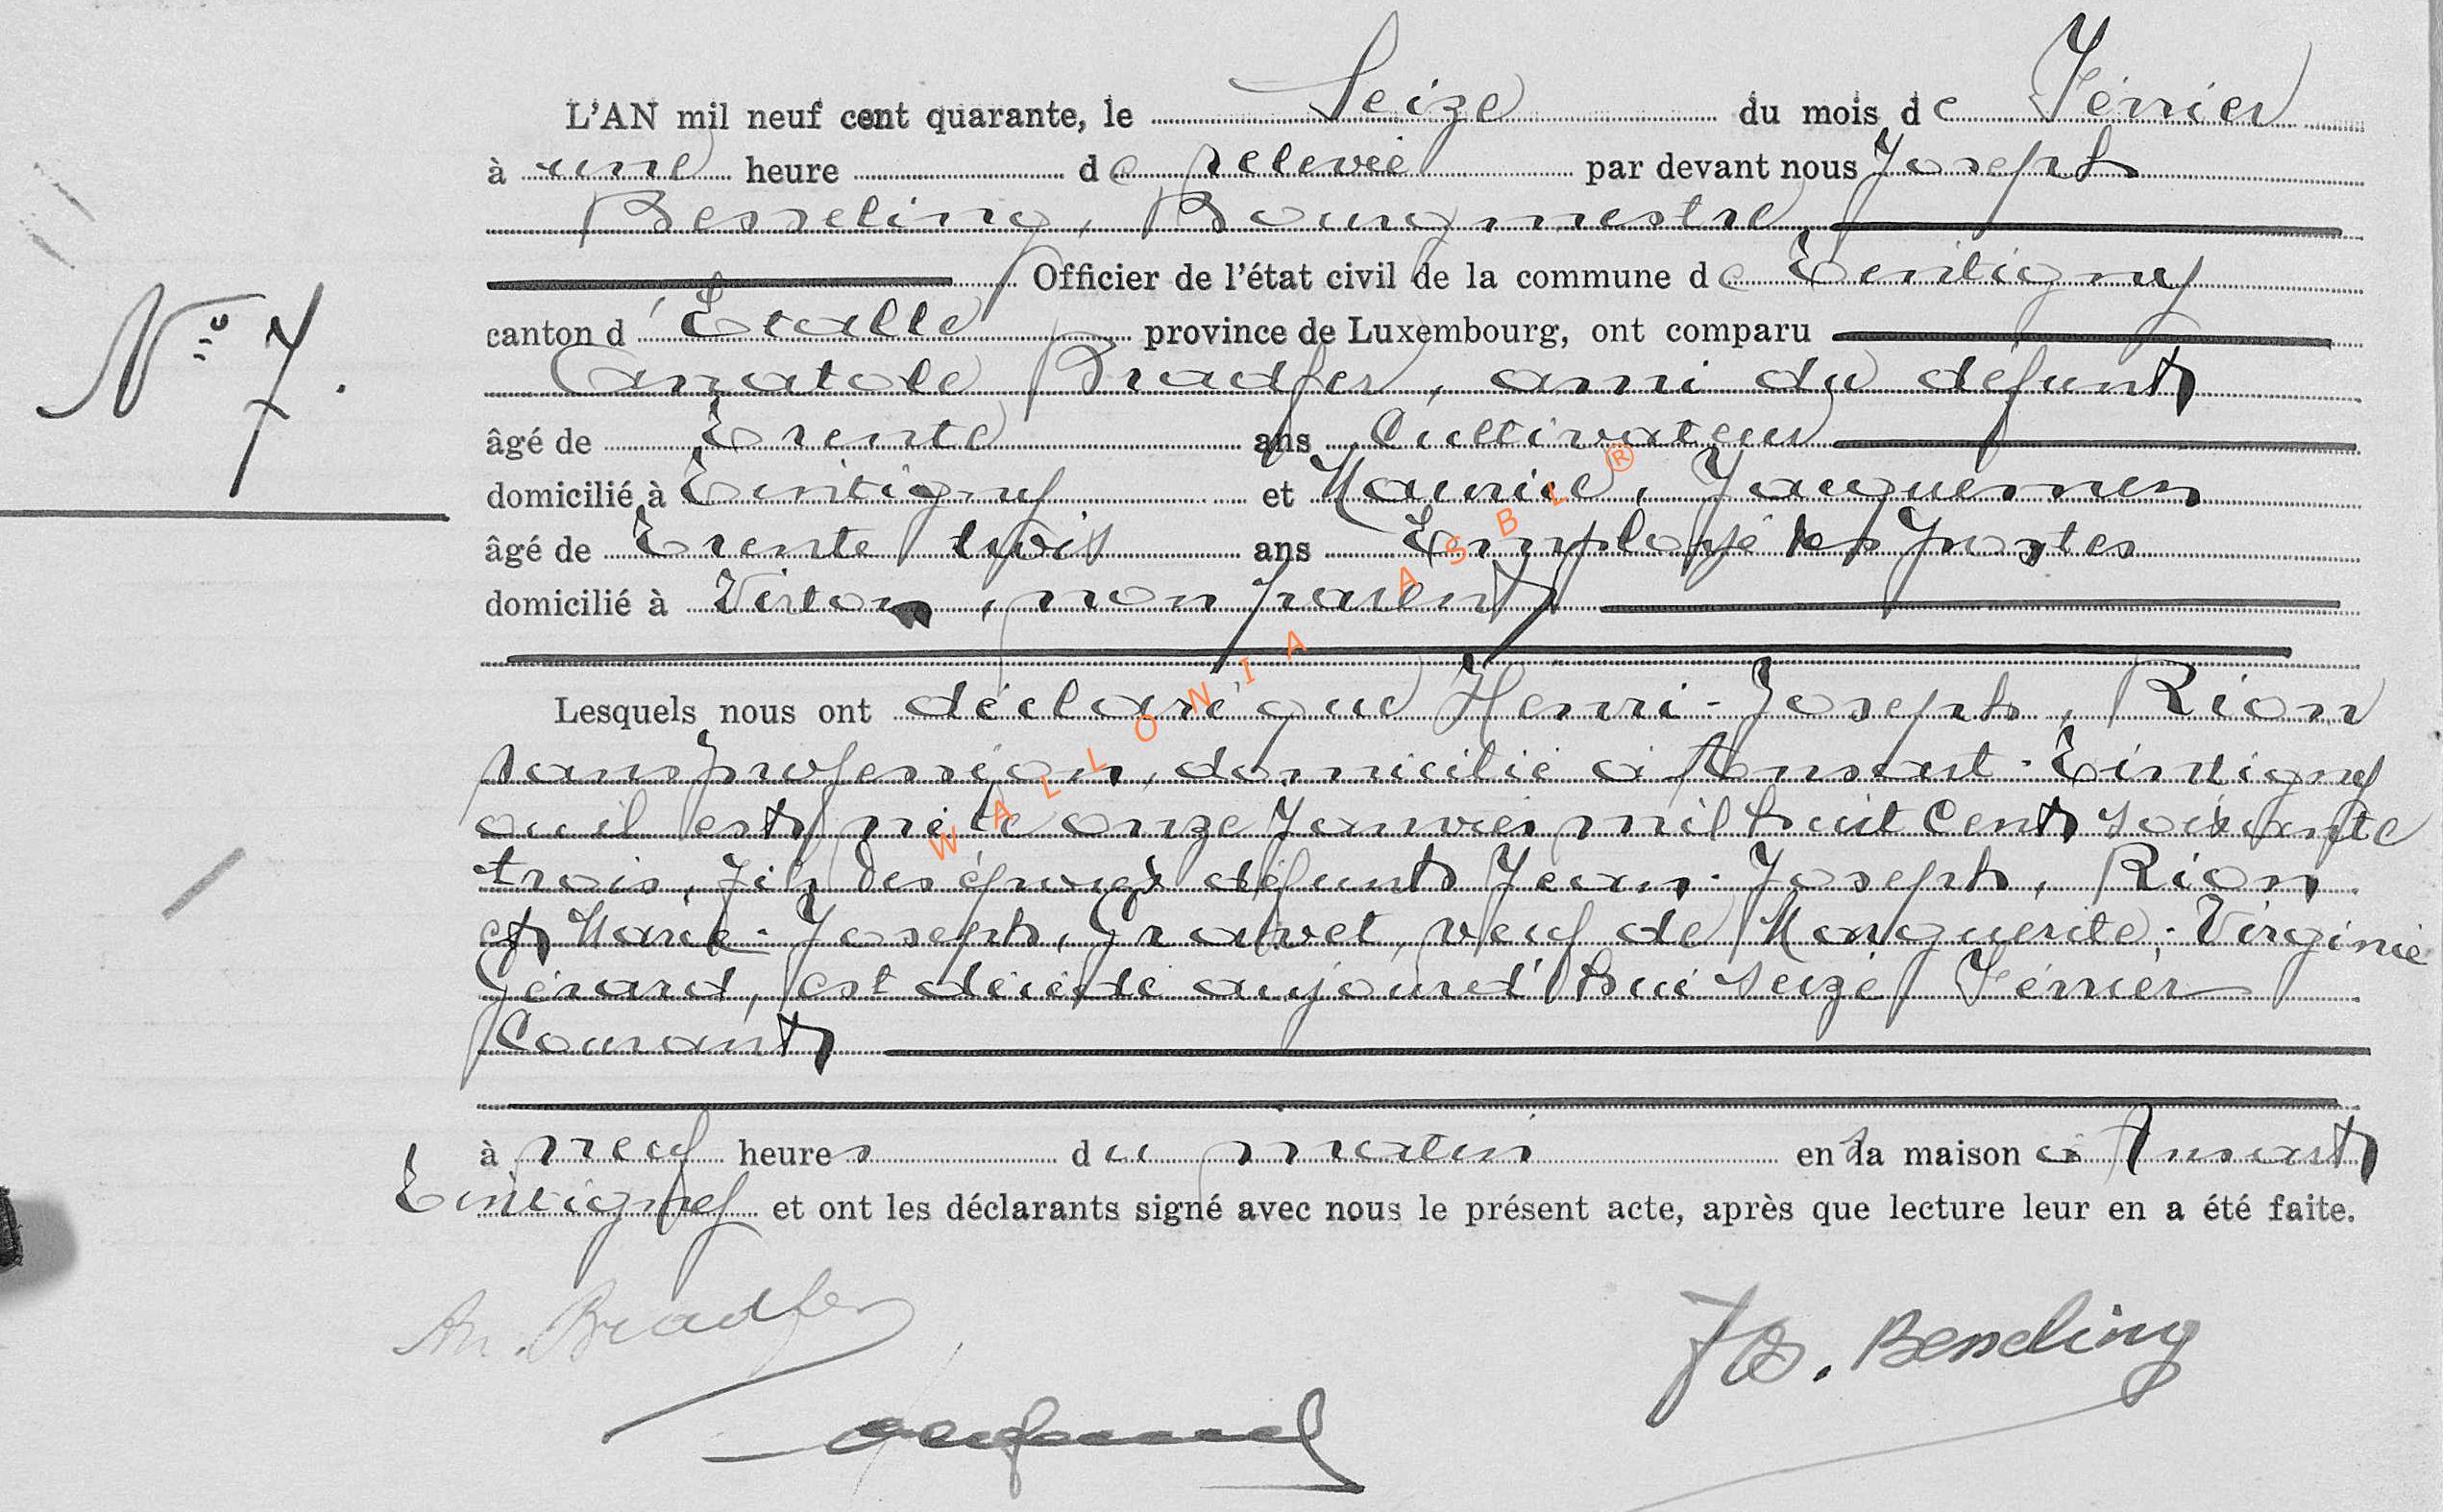 L'AN mil neuf cent quarante, le Seize du mois de Février
à une heure de relevée par devant nous Joseph
Besseling, Bourgmestre
Officier de l'état civil de la commune de Tintigny
N° 7.
canton d'Etalle province de Luxembourg, ont comparu
Anatole Bradfer, ami du défunt
âgé de Trente ans Cultivateur
domicilié à Tintigny et Maurice, Jacquemin
âgé de Trente trois ans Employé des Postes
domicilié à Virton, non parent
Lesquels nous ont déclaré que Henri-Joseph, Rion
sans profession, domicilié à Ansart-Tintigny
où il est né le onze Janvier mil huit cent soixante
trois, fils des époux défunts Jean-Joseph, Rion
et Marie-Joseph, Gravet, veuf de Marguerite-Virginie
Gérard, est décédé aujourd'hui seize Février
Courant
à neuf heures du matin en sa maison à Ansart
Tintigny et ont les déclarants signé avec nous le présent acte, après que lecture leur en a été faite.
An. Bradfer
Js. Besseling
WALLONIA ASBL ®